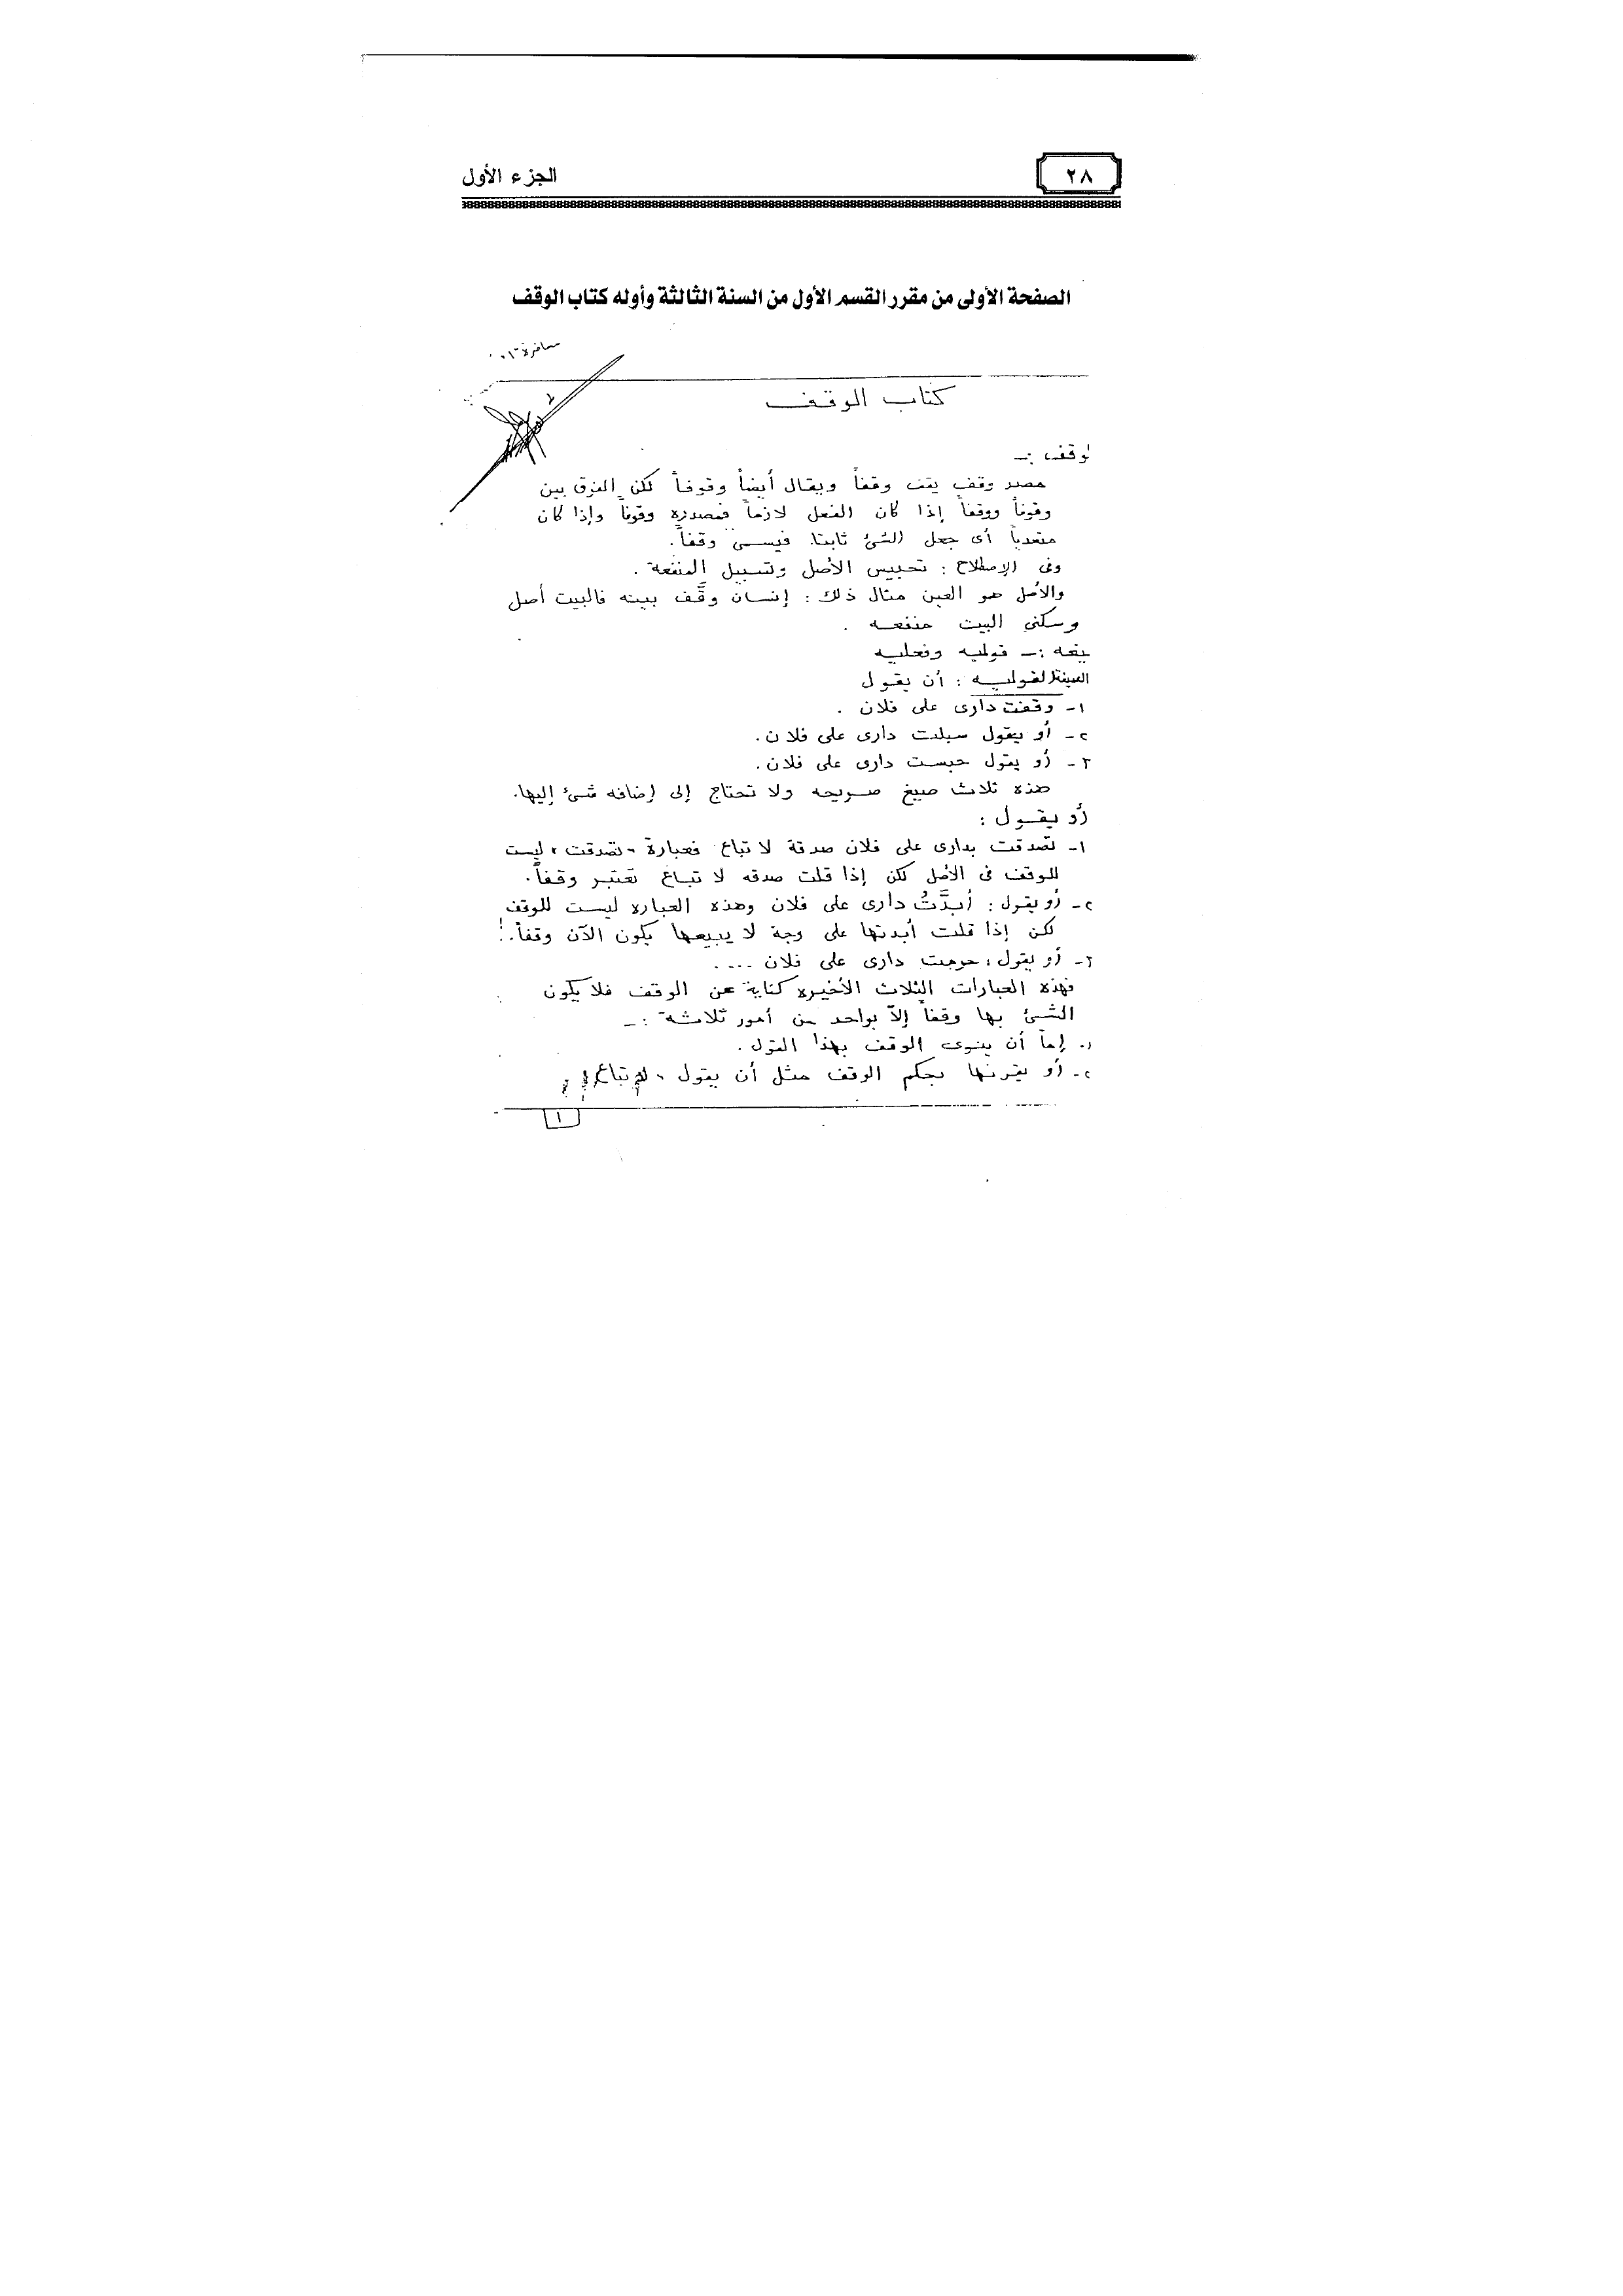 ٢٨
الجزء الأول
الصفحة الأولى من مقرر القسم الأول من السنة الثالثة وأوله كتاب الوقف
كتاب الوقف
لوقف :-
مصدر وقف يقف وقفاً ويقال أيضاً وقوفاً لكن الفرق بين
وقوفاً ووقفاً إذا كان الفعل لازماً فمصدره وقوفاً وإذا كان
متعدياً أى جعل الشئ ثابتا. فيسمى وقفاً.
وفى الإصطلاح : تحبيس الأصل وتسبيل المنفعة .
والأصل هو العين مثال ذلك : إنسان وقَّف بيته فالبيت أصل
وسكنى البيت منفعه .
يغه :- قوليه وفعليه
الصيغة القوليه : أن يقول
١- وقفت دارى على فلان .
٢- أو يقول سبلت دارى على فلان.
٣- أو يقول حبست دارى على فلان.
هذه ثلاث صيغ صريحه ولا تحتاج إلى إضافه شئ إليها.
أو يقول :
١- تصدقت بدارى على فلان صدقة لا تباع فعبارة "تصدقت" ليست
للوقف فى الأصل لكن إذا قلت صدقه لا تباع تعتبر وقفاً.
٢- أو يقول : أبدَّتُ دارى على فلان وهذه العباره ليست للوقف
لكن إذا قلت أبدتها على وجة لا يبيعها يكون الآن وقفاً.
٣- أو يقول : حرمت دارى على فلان ....
فهذه العبارات الثلاث الأخيره كناية عن الوقف فلا يكون
الشئ بها وقفاً إلاّ بواحد من أمور ثلاثة :-
١- إما أن ينوى الوقف بهذا القول .
٢- أو يقرنها بحكم الوقف مثل أن يقول " لا تباع
١